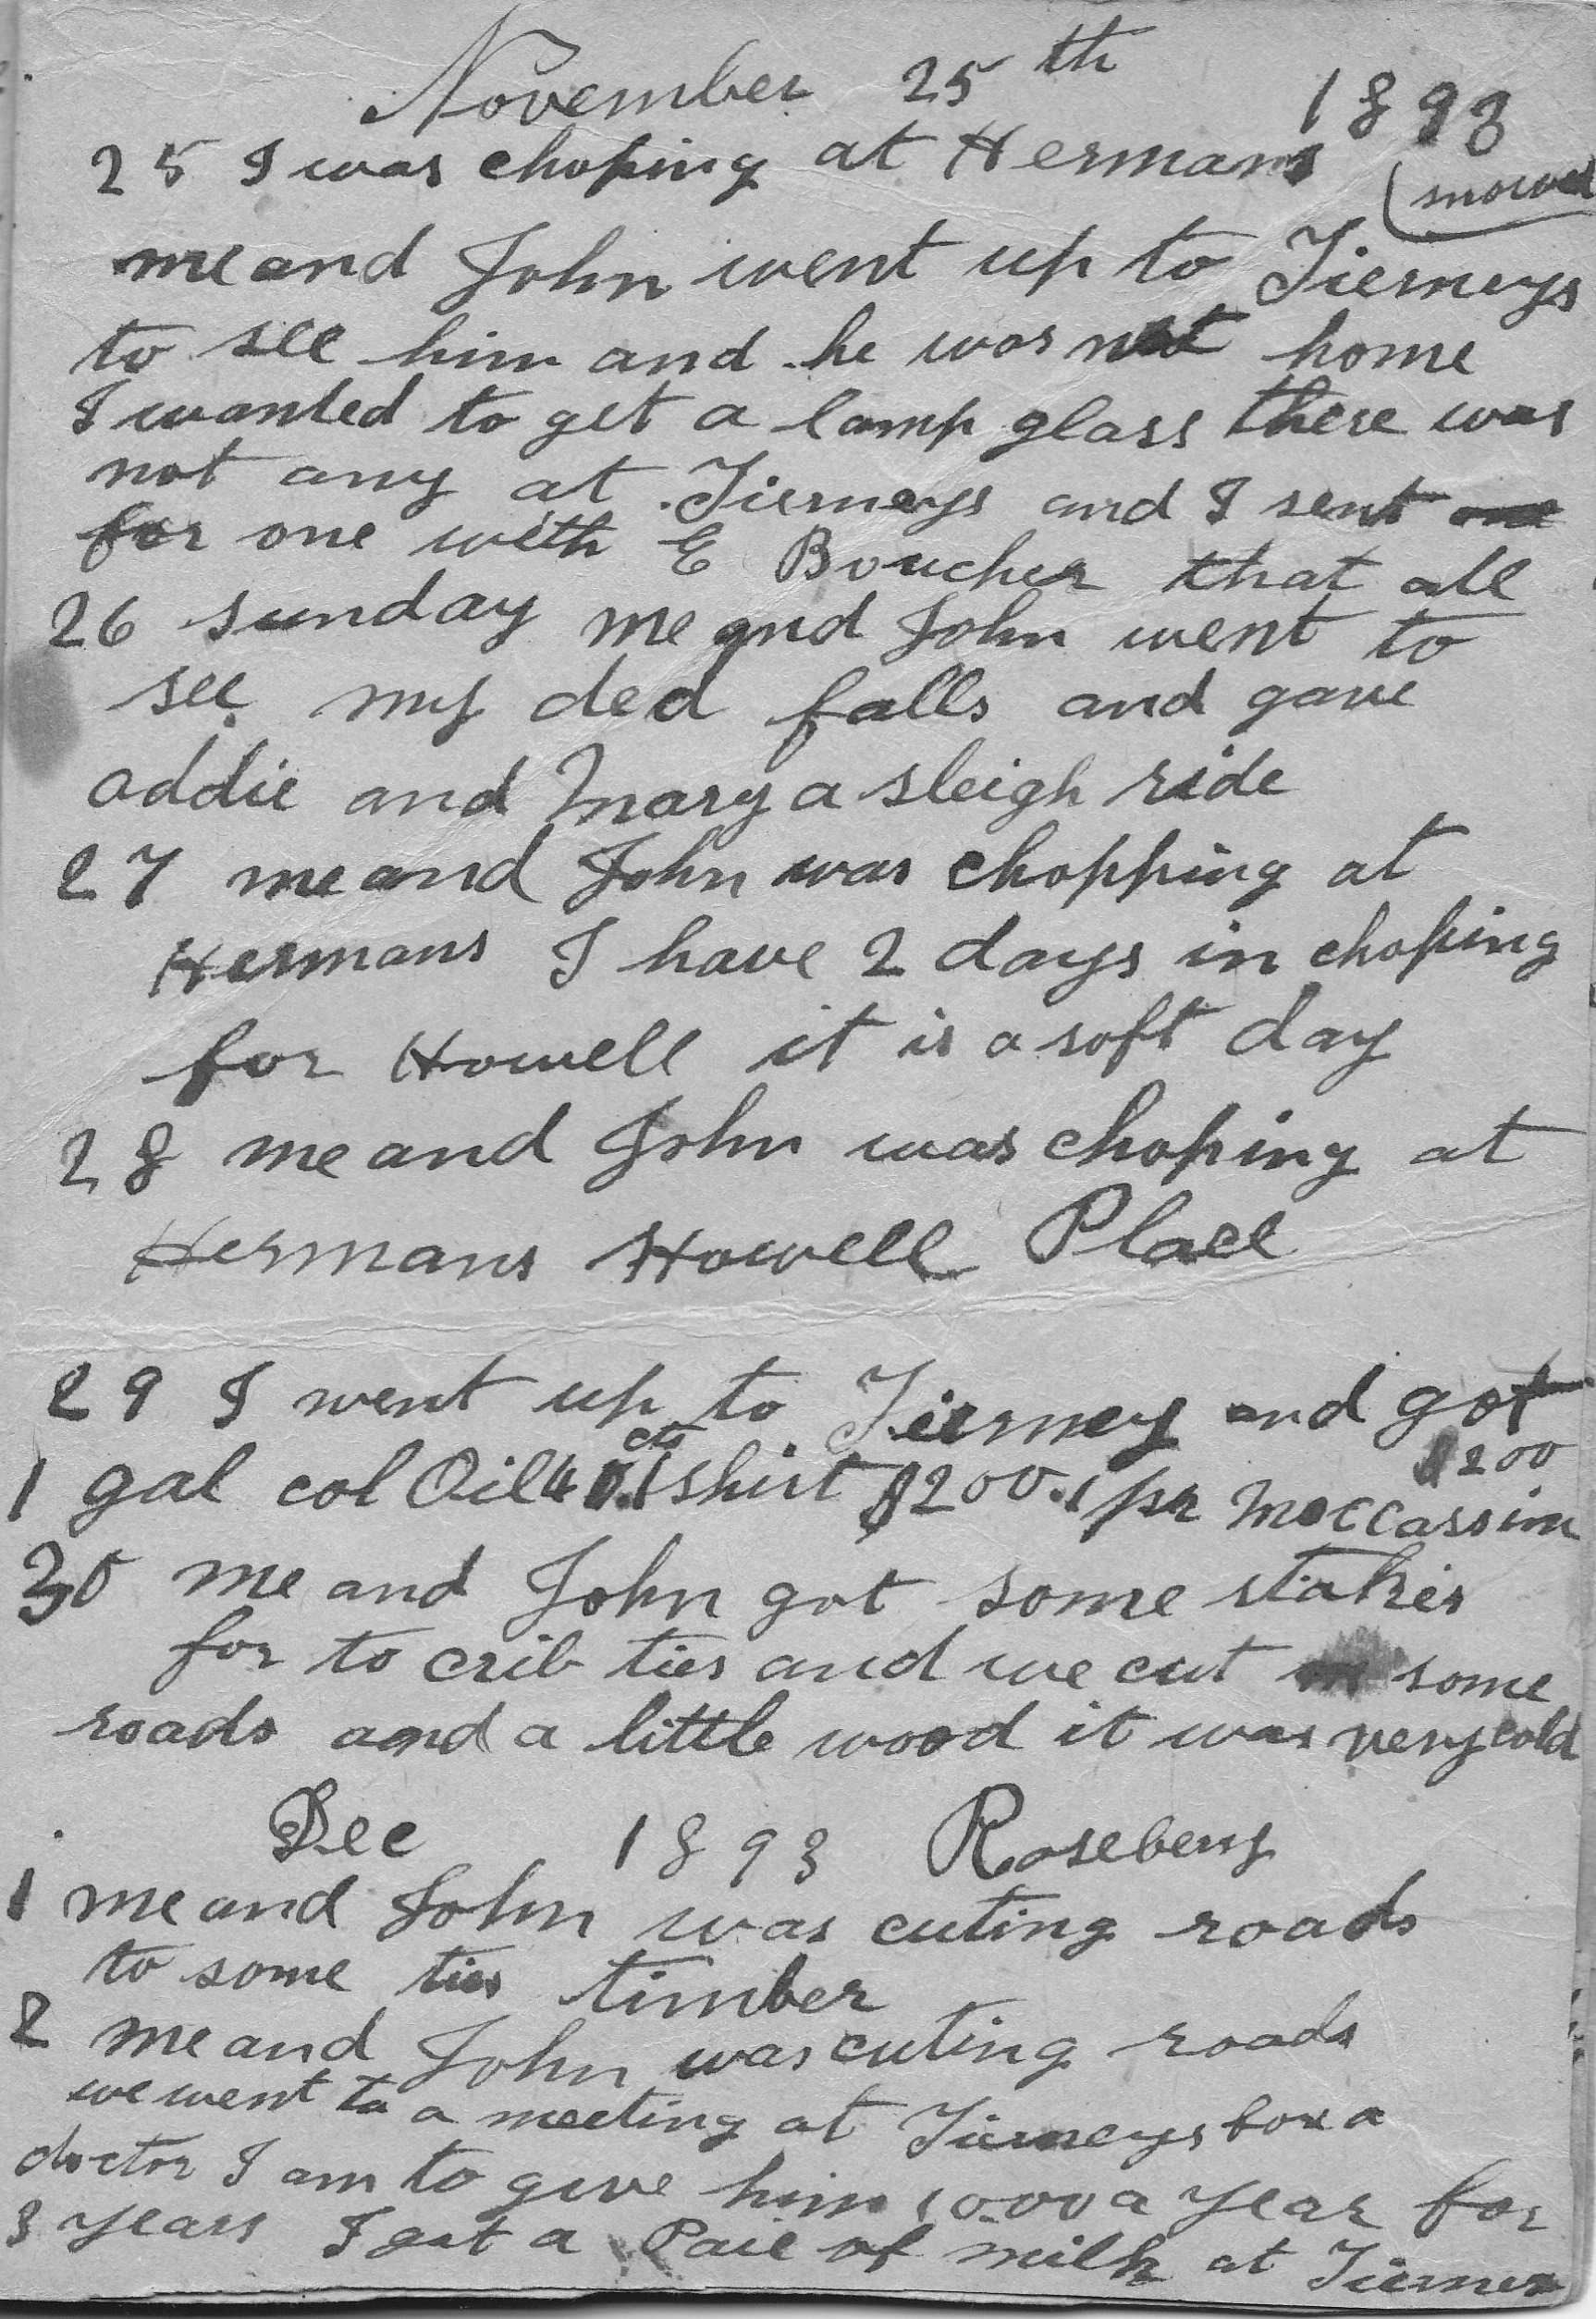 November 25th 1893
25 I was choping at Hermans (snowed
me and John went up to Tierneys
to see him and he was not home
I wanted to get a lamp glass there was
not any at Tierneys and I sent
for one with E Boucher that all
26 sunday me and John went to
see my ded falls and gave
addie and Mary a sleigh ride
27 me and John was chopping at
Hermans I have 2 days in choping
for Howell it is a soft day
28 me and John was choping at
Hermans Howell Place
29 I went up to Tierney and got
1 gal col Oil 40cts 1 shirt $200. 1 pr Moccassim $200
30 me and John got some stakes
for to crib ties and we cut some
roads and a little wood it was very cold
Dec 1893 Rosebery
1 me and John was cuting roads
to some ties timber
2 me and John was cuting roads
we went to a meeting at Tierneys for a
doctor I am to give him 10.00 a year for
3 years I got a Pail of milk at Tierney